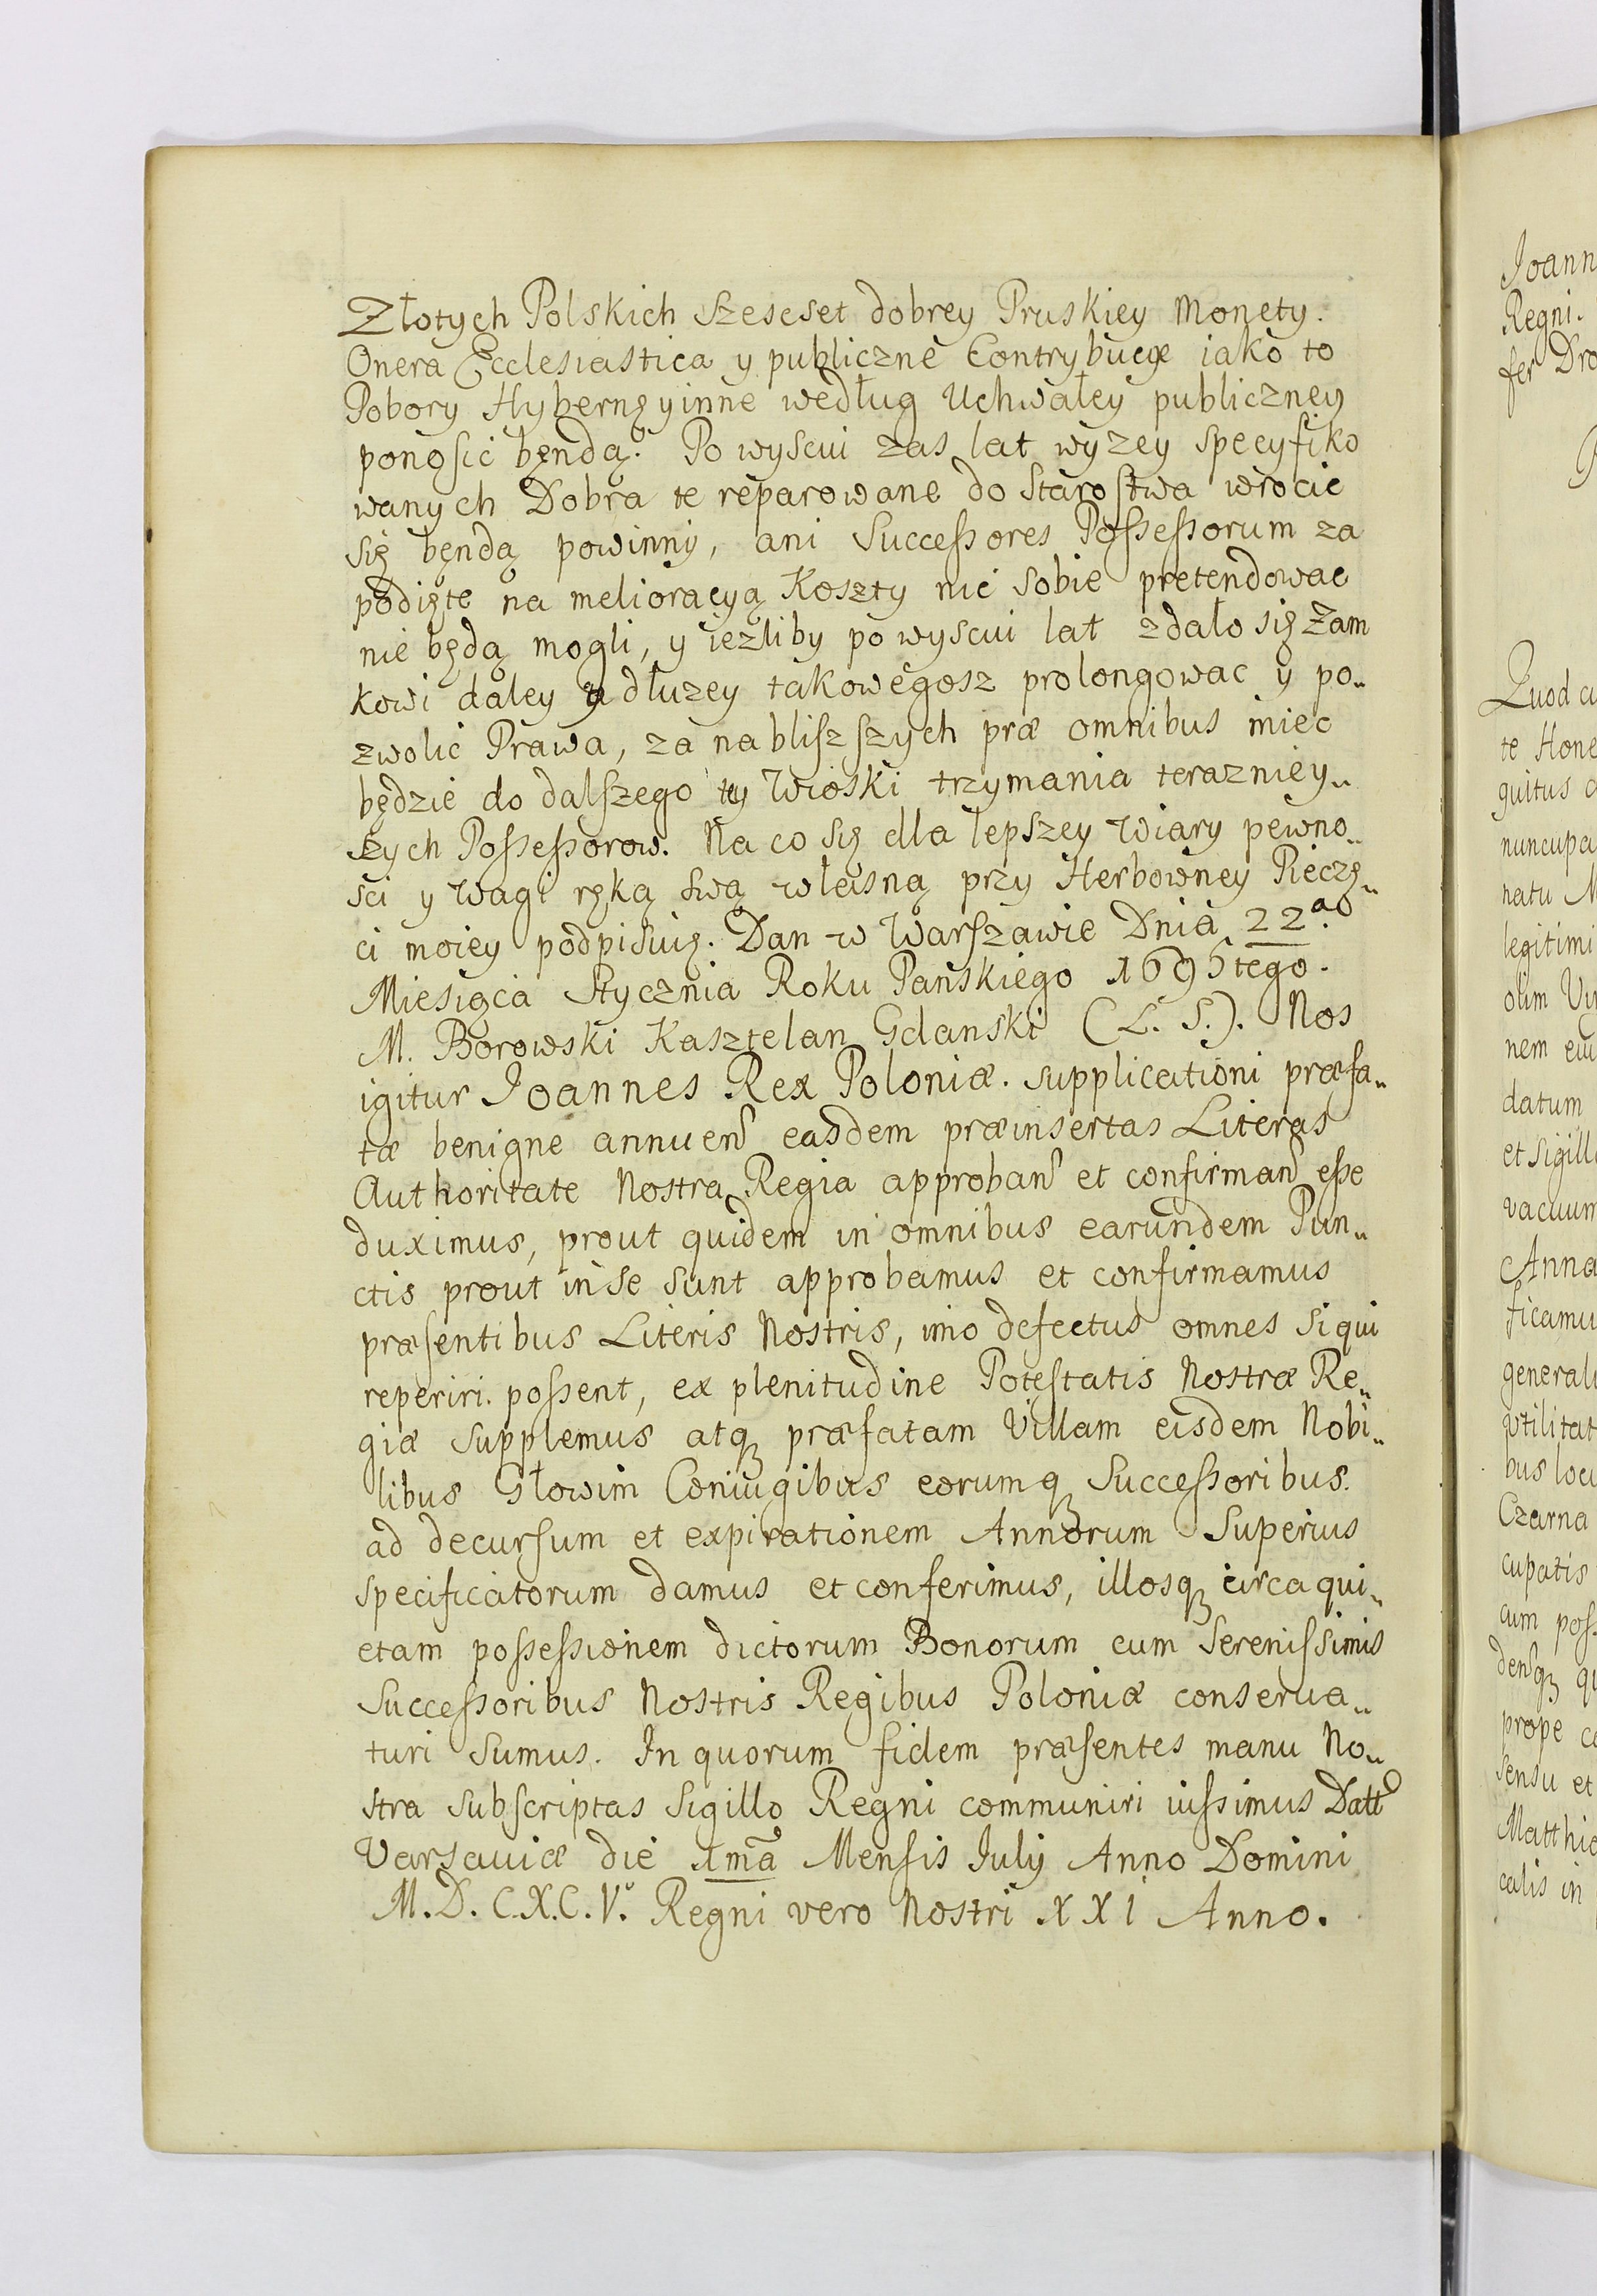 Złotych Polskich szescset dobrey Pruskiey Monety.
Onera Ecclesiastica y publiczne Contrybucye iako to
Pobory Hybernę y inne według Uchwałey publiczney
ponosić bęndą. Po wyscui zas lat wyzey specyfiko
wanych Dobra te reparowane do Starostwa wrocic
się bęndą powinny, ani Successores Possessorum za
podięte na melioracyą Koszty nic sobie pretendowac
nie będą mogli, y iezliby po wyscui lat zdało się Zam
kowi daley y dłuzey takowegosz prolongowac y po„
zwolić Prawa, za nabliszszych præ omnibus miec
będzie do dalszego tey Wioski trzymania terazniey„
szych Possessorow. Na co się dla lepszey wiary pewno„
sci y wagi ręką swą własną przy Herbowney Pieczę„
ci moiey podpisuię. Dan w Warszawie Dnia 22ao
Miesiąca Stycznia Roku Pańskiego 1695tego.
M. Borowski Kasztelan Gdanski (L. S.). Nos
igitur Joannes Rex Poloniæ. supplicationi præfa„
tæ benigne annuen̄ easdem præinsertas Literas
Authoritate Nostra Regia approban̄ et confirman̄ esse
duximus, prout quidem in omnibus earundem Pun„
ctis prout in se sunt approbamus et confirmamus
præsentibus Literis Nostris, imo defectus omnes si qui
reperiri. possent, ex plenitudine Potestatis Nostræ Re„
giæ supplemus atq præfatam Villam eisdem Nobi„
libus Głowim Coniugibus eorumq Successoribus.
ad decursum et expirationem Annorum Superius
specificatorum damus et conferimus, illosq circa qui„
etam possessionem dictorum Bonorum cum Serenissimis
Successoribus Nostris Regibus Poloniæ conserua„
turi sumus. In quorum fidem præsentes manu No„
stra subscriptas Sigillo Regni communiri iussimus Datt
Varsauiæ die 1mā Mensis July Anno Domini
M.D.C.X.C.V. Regni vero Nostri XXI Anno.
Joann
Regni.
fer Dro
Quod cu
te Hone
guitus
nuncupa
natu M
legitimi
olim Vi
nem eiu
datum
et sigill
vacuum
Anna
ficamu
general
utilitat
bus loc
Czarna
cupatis
cum poss
densq qu
prope co
sensu et
Matthi
calis in